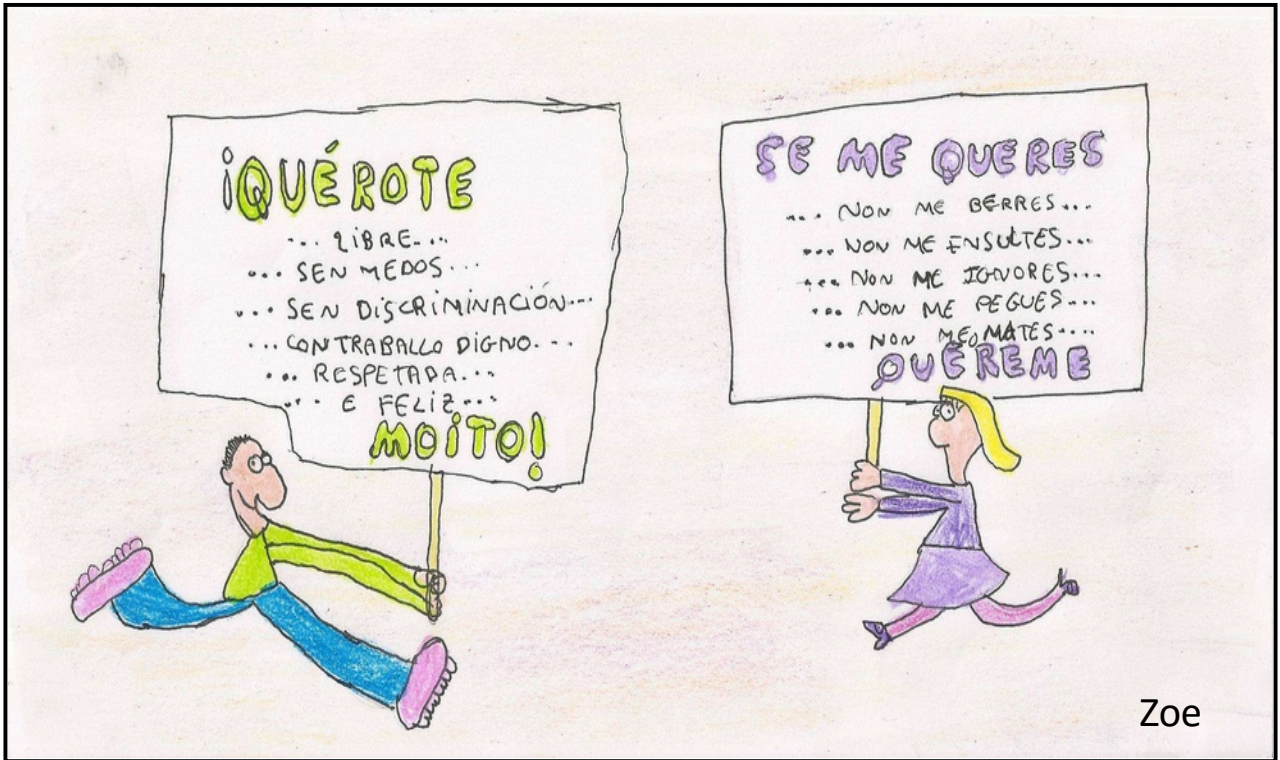 ¡QUÉROTE
... LIBRE...
... SEN MEDOS...
... SEN DISCRIMINACIÓN...
... CON TRABALLO DIGNO...
... RESPETADA...
... E FELIZ...
MOITO!
SE ME QUERES
... NON ME BERRES...
... NON ME ENSULTES...
... NON ME IGNORES...
... NON ME PEGUES...
... NON ME MATES....
QUÉREME
Zoe